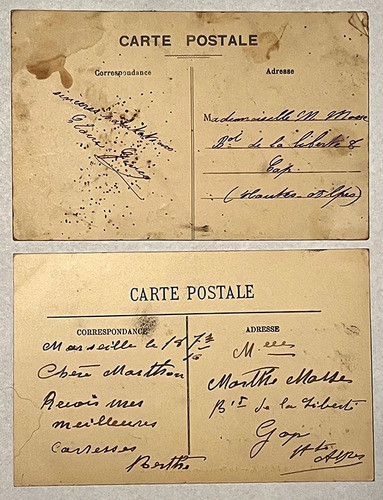 CARTE POSTALE
Correspondance
sincères salutations
Adresse
Mademoiselle M. Masse
Bd de la liberté 8
Gap
(Hautes-Alpes)
CARTE POSTALE
CORRESPONDANCE
Marseille le 18
Chère Marthon
Reçois mes
meilleures
caresses
Berthe
ADRESSE
Melles
Marthe Masse
Bd de la Liberté
Gap
Htes
Alpes